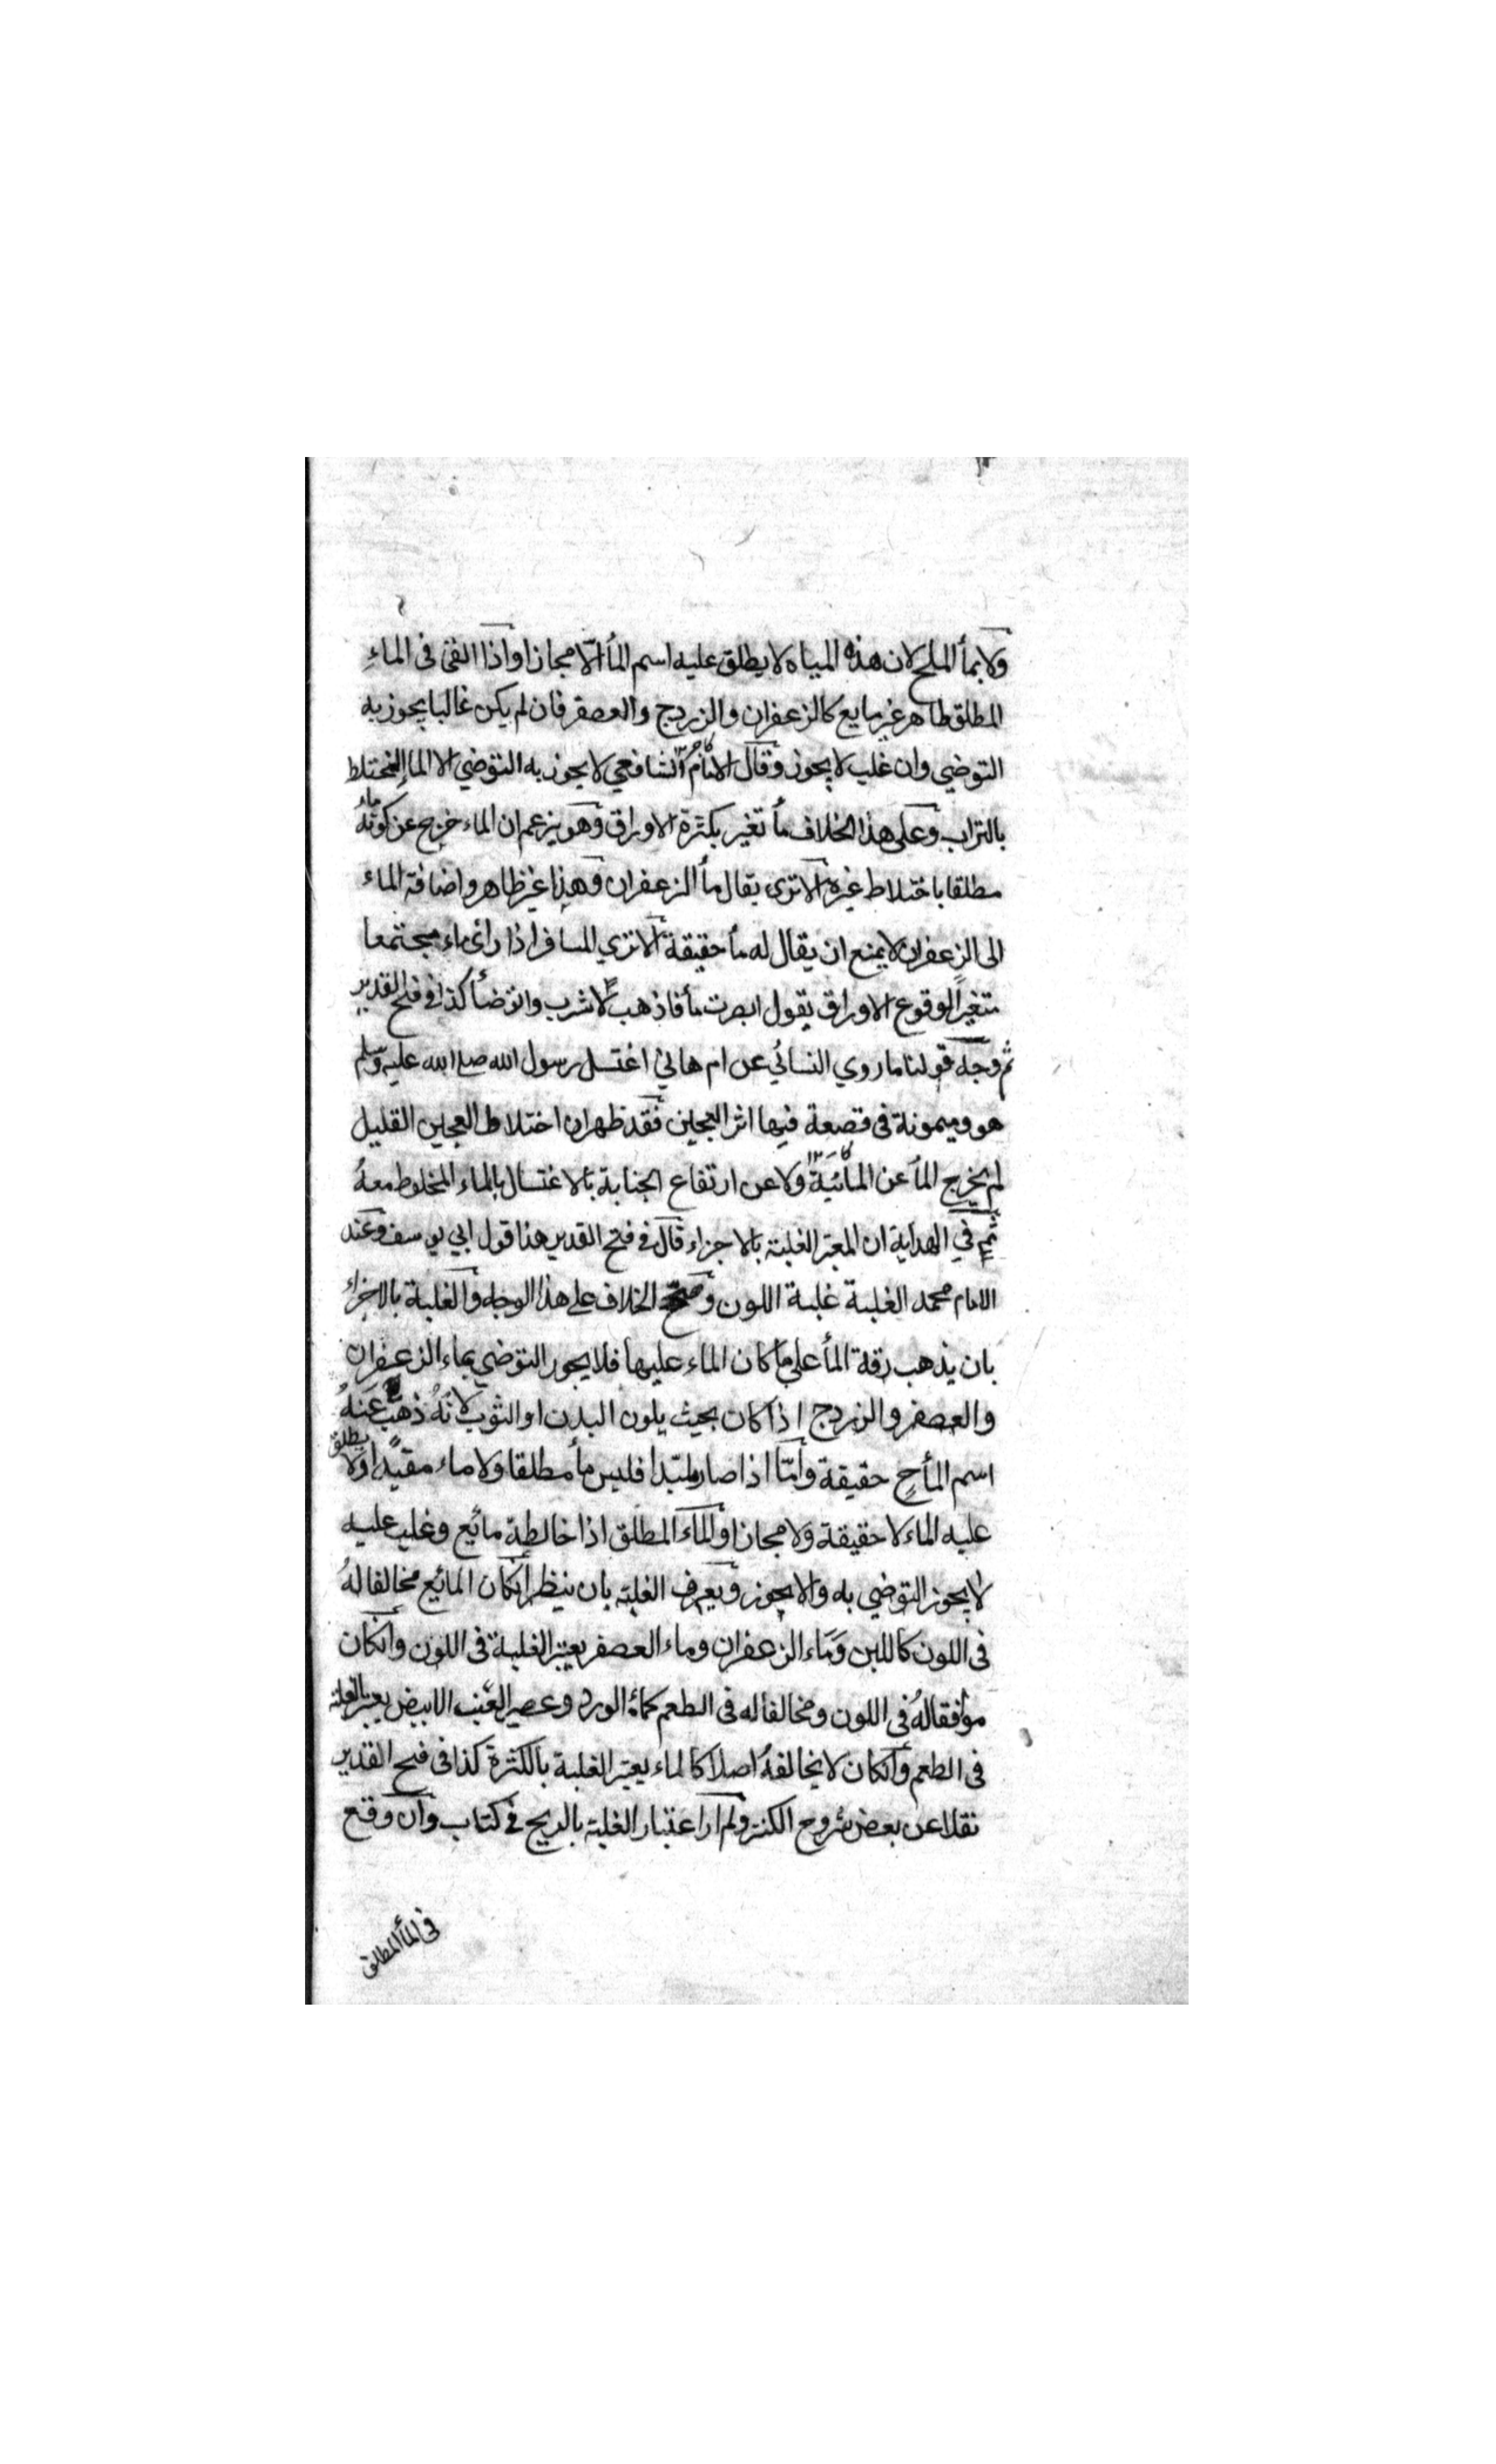 ولا بمأ الملح لان هذه المياه لا يطلق عليه اسم المأ الا مجازا واذا القى فى الماء
المطلق طاهر غير مايع كالزعفران والزردج والعصفر فان لم يكن غالبا يجوز به
التوضي وان غلب لا يجوز وقال الامام الشافعي لا يجوز به التوضي الا الماء المختلط
بالتراب وعلى هذا الخلاف مأ تغير بكثرة الاوراق وهو يزعم ان الماء خرج عن كونه ماء
مطلقا باختلاط غيره الا ترى يقال مأ الزعفران وهذا غير ظاهر واضافة الماء
الى الزعفران لا يمنع ان يقال له مأ حقيقة الا ترى المسافر اذا رأى ماء مجتمعا
متغيرا لوقوع الاوراق يقول ابصرت مأ فاذهب لاشرب واتوضأ كذا فى فتح القدير
ثم وجه قولنا ما روي النسائي عن ام هاني اغتسل رسول الله صلى الله عليه وسلم
هو وميمونة فى قصعة فيها اثر العجين فقد ظهر ان اختلاط العجين القليل
لم يخرج المأ عن المائية ولا عن ارتفاع الجنابة بالاغتسال بالماء المخلوط معه
ثم في الهداية ان المعتبر الغلبة بالاجزاء قال في فتح القدير هذا قول ابي يوسف وعند
الامام محمد الغلبة غلبة اللون وصحح الخلاف على هذا الوجه والغلبة بالاجزاء
بان يذهب رقة المأ على ما كان الماء عليها فلا يجوز التوضي بماء الزعفران
والعصفر والزردج اذا كان بحيث يلون البدن او الثوب لانه ذهب عنه
اسم المأ ح حقيقة واما اذا صار ملبدا فليس مأ مطلقا ولا ماء مقيدا ولا يطلق
عليه الماء لا حقيقة ولا مجازا والماء المطلق اذا خالطه مائع وغلب عليه
لا يجوز التوضي به والا يجوز ويعرف الغلبة بان ينظر ان كان المائع مخالفا له
فى اللون كاللبن وماء الزعفران وماء العصفر يعتبر الغلبة فى اللون وان كان
موافقا له فى اللون ومخالفا له فى الطعم كماء الورد وعصير العنب الابيض يعتبر الغلبة
فى الطعم وان كان لا يخالفه اصلا كالماء يعتبر الغلبة بالكثرة كذا فى فتح القدير
نقلا عن بعض شروح الكنز ولم ار اعتبار الغلبة بالريح في كتاب وان وقع
فى المأ المطلق